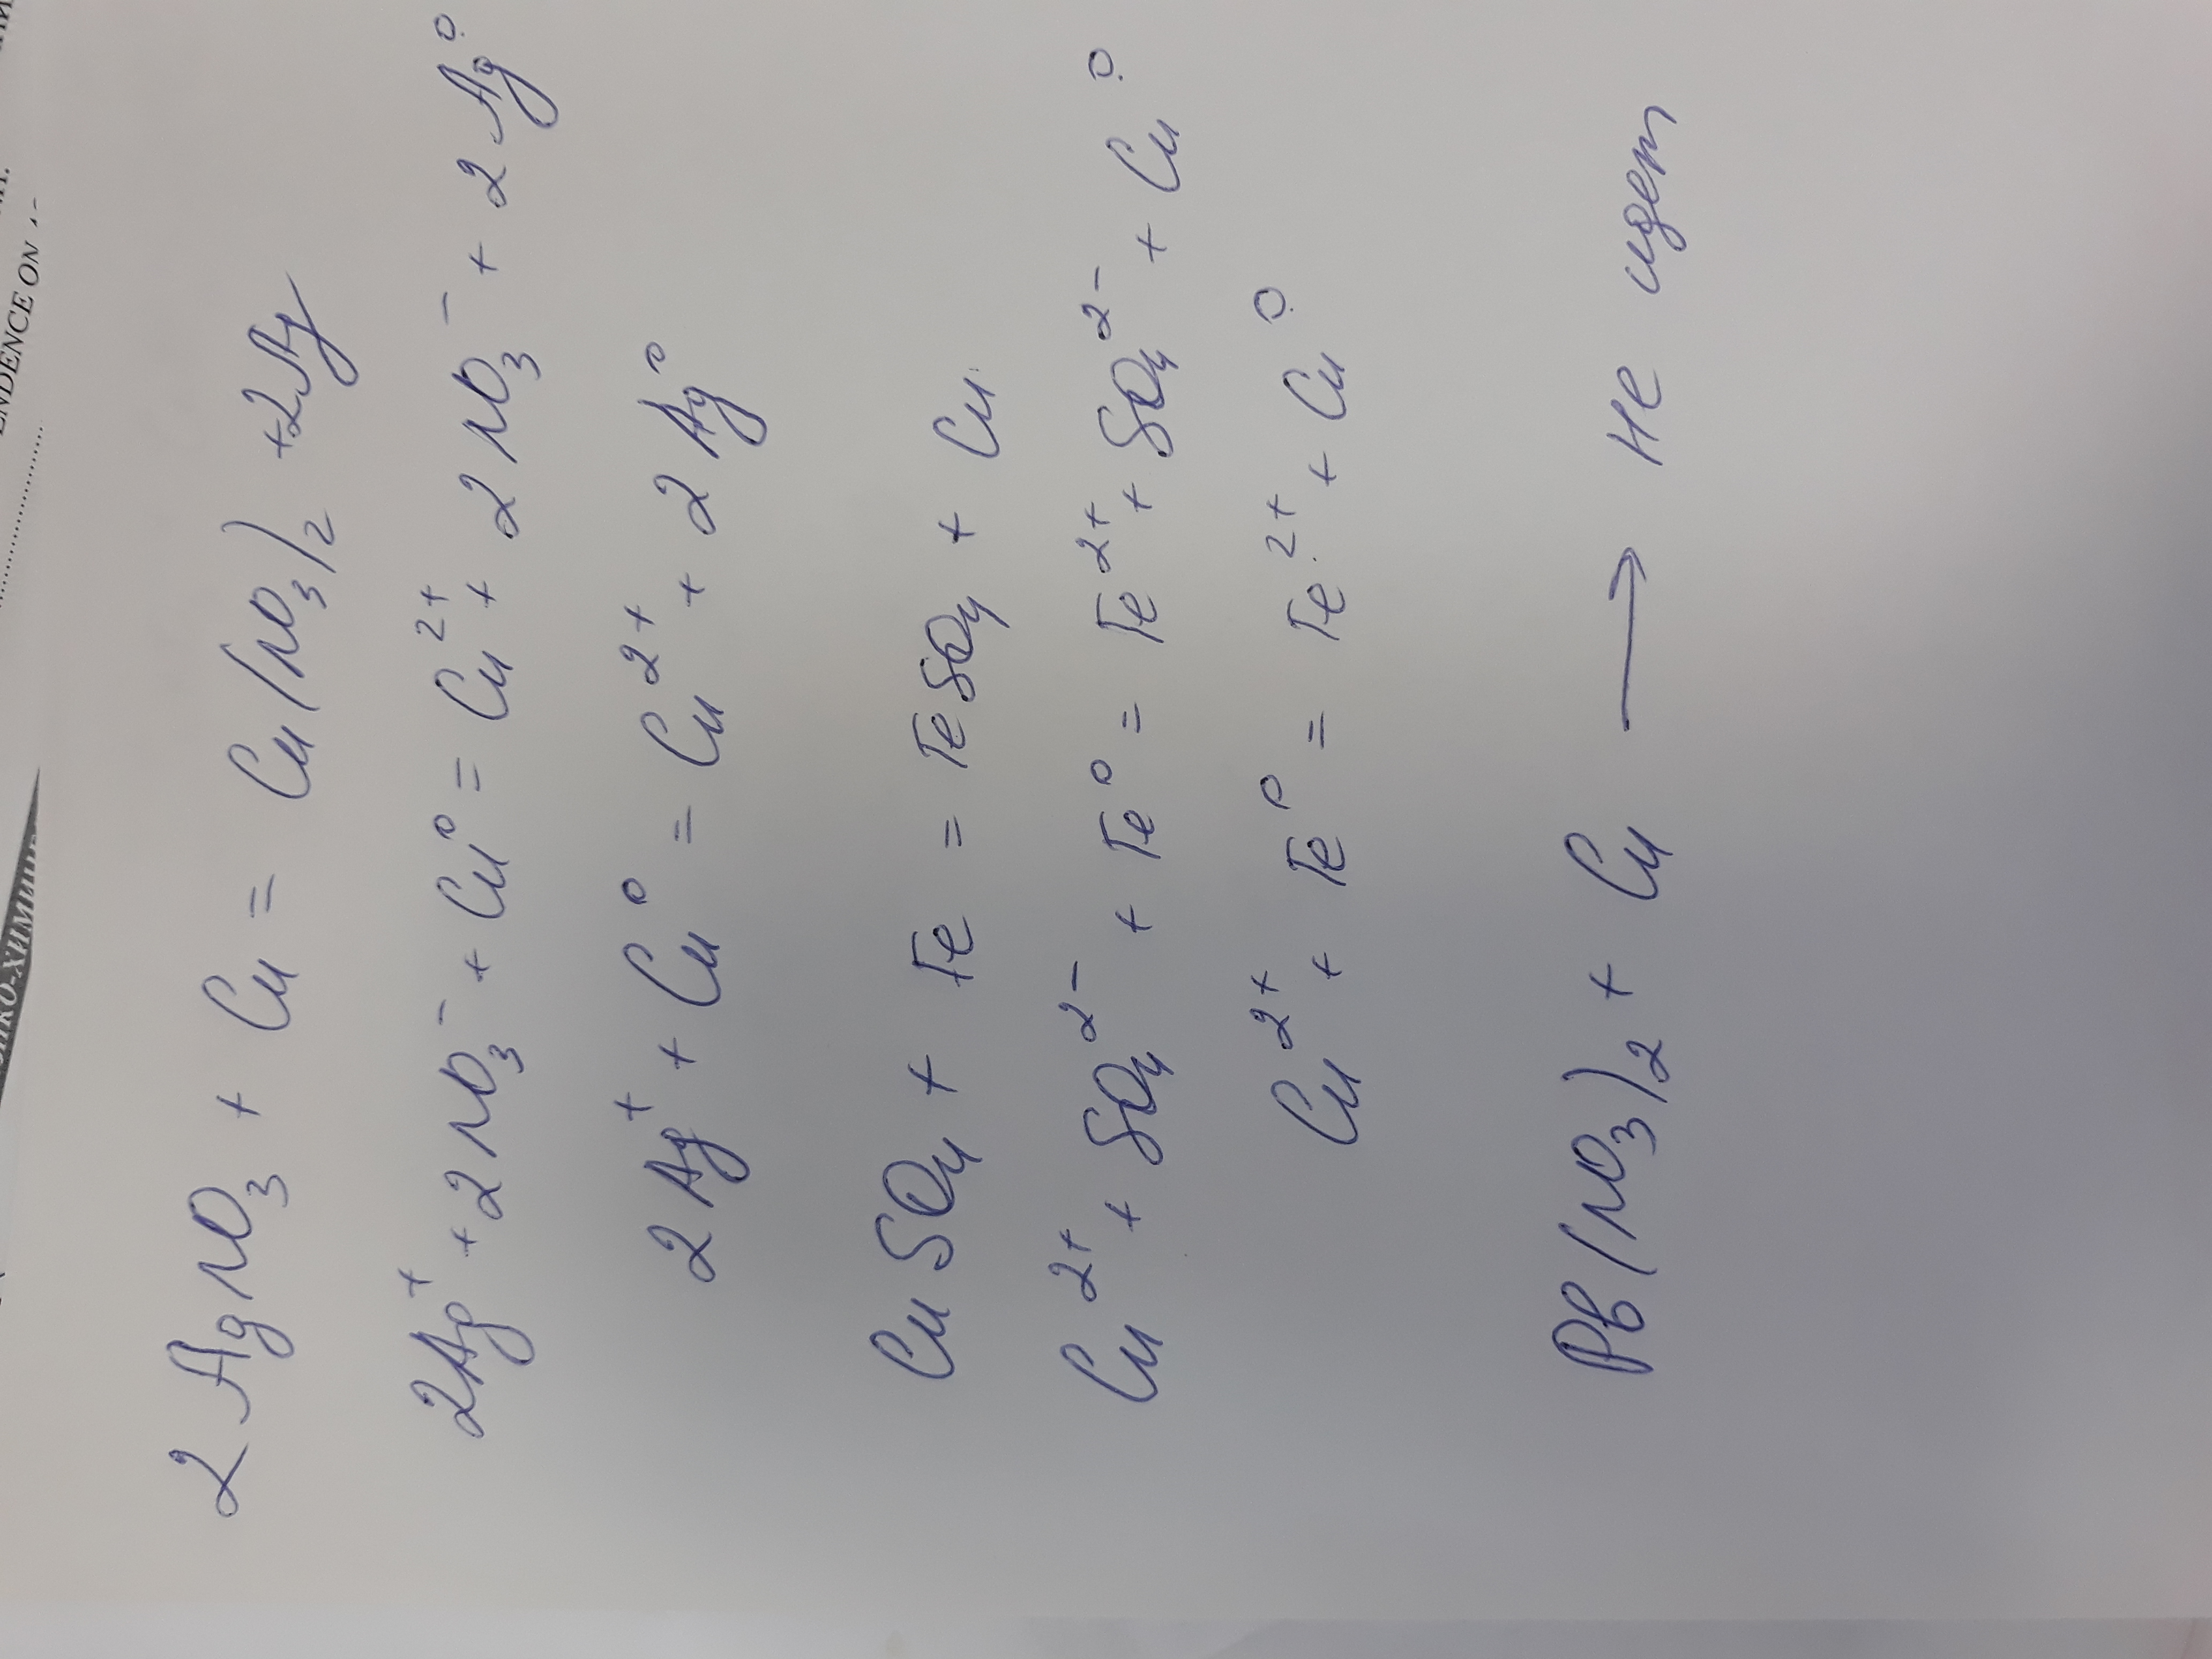 ENDENCE ON
2AgNO₃ + Cu = Cu(NO₃)₂ + 2Ag
2Ag⁺ + 2NO₃⁻ + Cu⁰ = Cu²⁺ + 2NO₃⁻ + 2Ag⁰
2Ag⁺ + Cu⁰ = Cu²⁺ + 2Ag⁰
CuSO₄ + Fe = FeSO₄ + Cu
Cu²⁺ + SO₄²⁻ + Fe⁰ = Fe²⁺ + SO₄²⁻ + Cu⁰
Cu²⁺ + Fe⁰ = Fe²⁺ + Cu⁰
Pb(NO₃)₂ + Cu → не идет